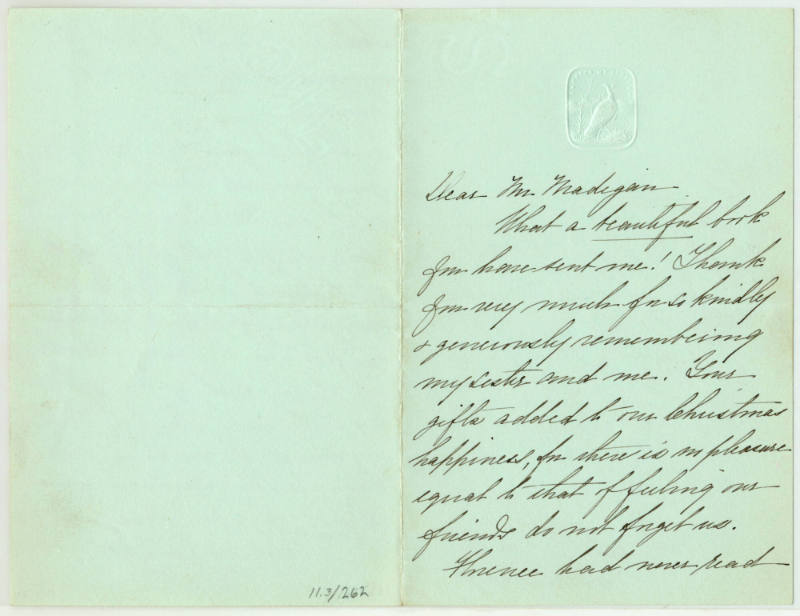 Dear Mr Madigan.
What a beautiful book
you have sent me! Thank
you very much for so kindly
& generously remembering
my sister and me. Your
gifts added to our Christmas
happiness, for there is no pleasure
equal to that of feeling our
friends do not forget us.
Florence had never read
11.3/.262